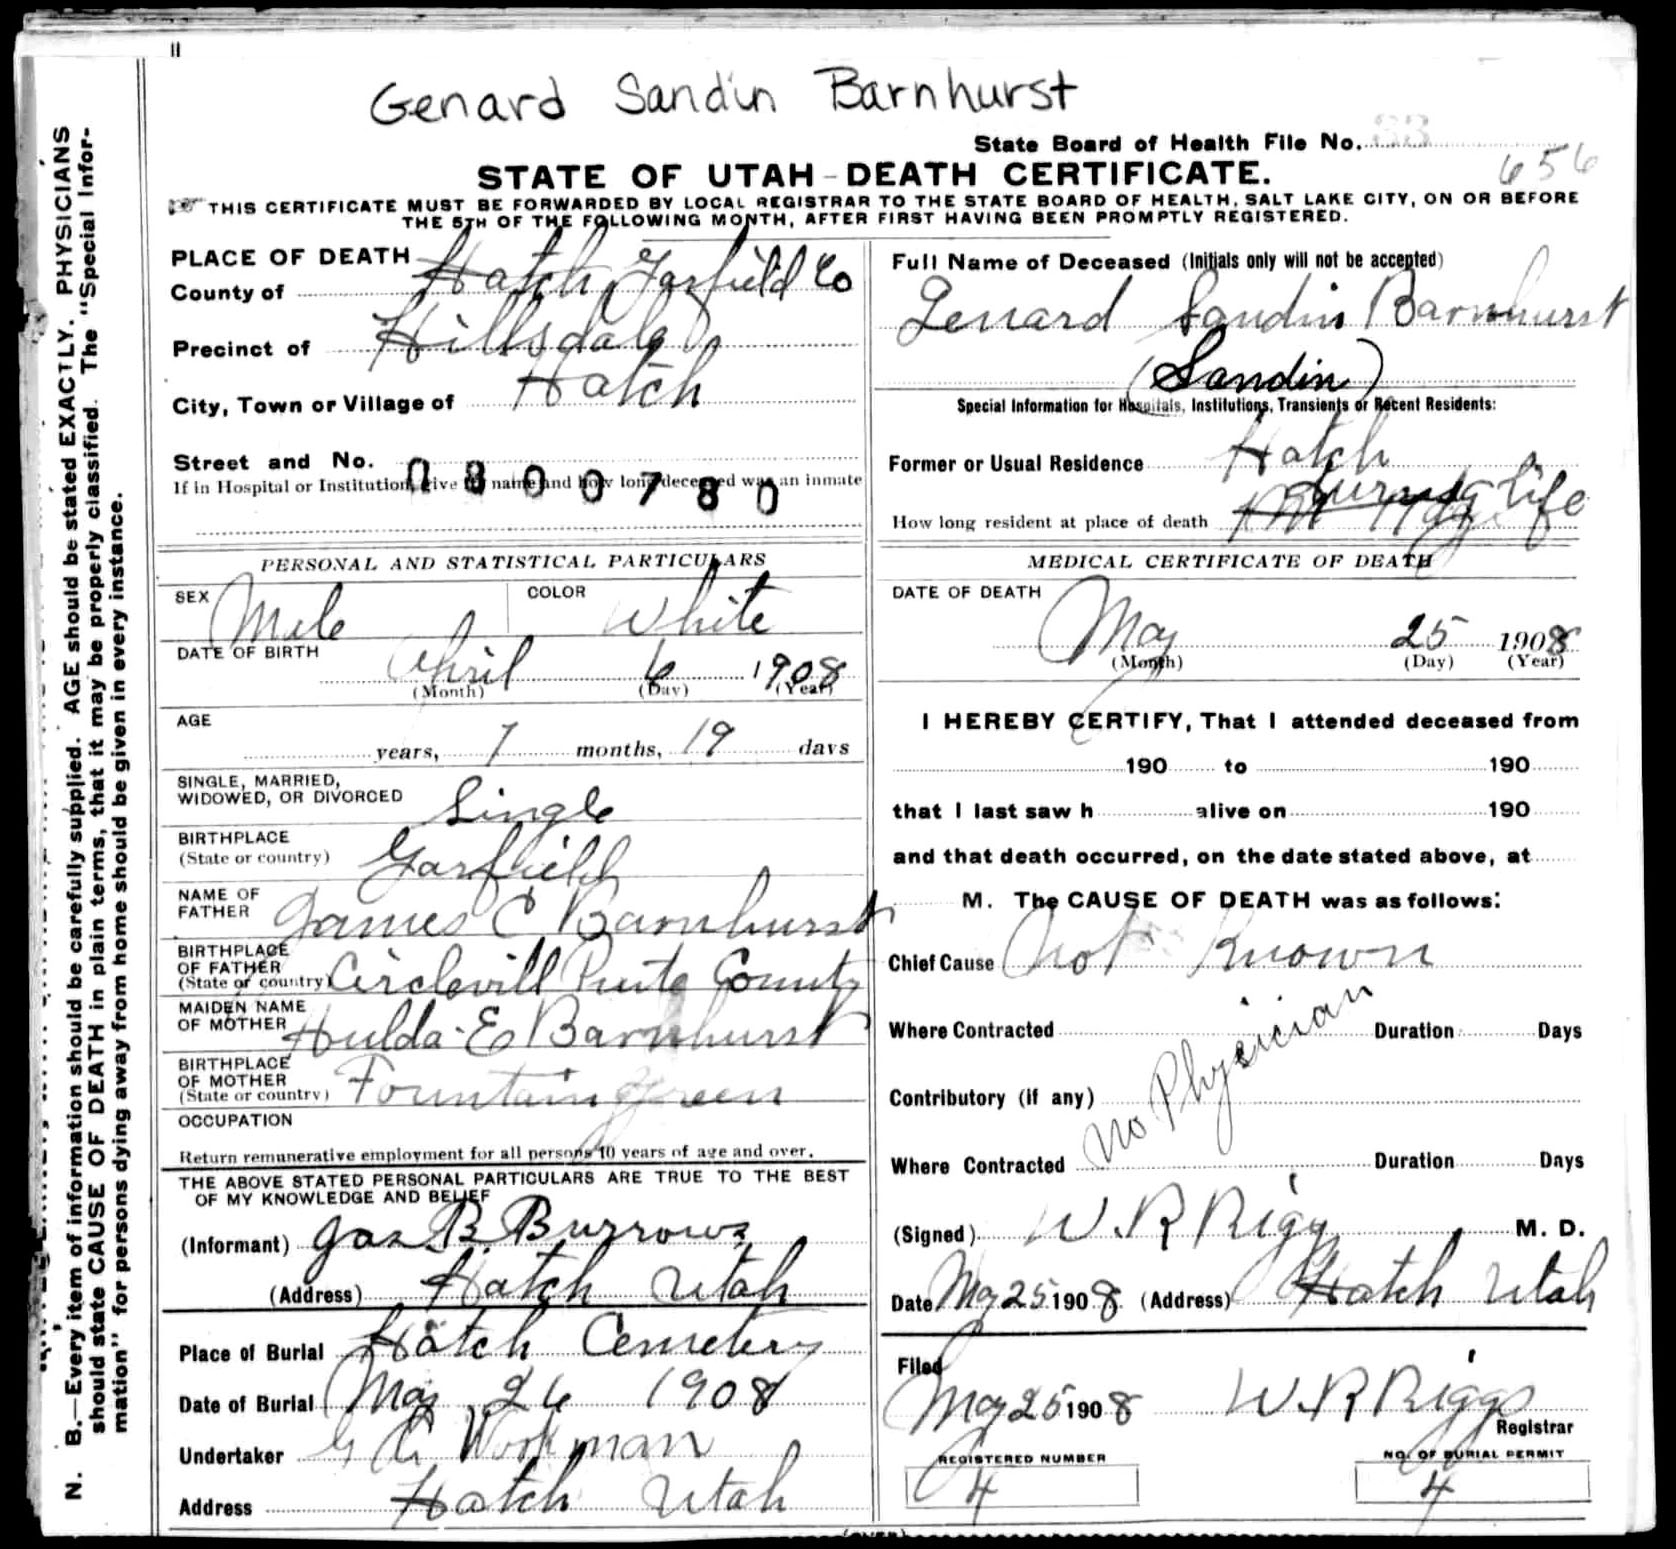 Genard Sandin Barnhurst
State Board of Health File No. 33
656
STATE OF UTAH - DEATH CERTIFICATE.
THIS CERTIFICATE MUST BE FORWARDED BY LOCAL REGISTRAR TO THE STATE BOARD OF HEALTH, SALT LAKE CITY, ON OR BEFORE
THE 5TH OF THE FOLLOWING MONTH, AFTER FIRST HAVING BEEN PROMPTLY REGISTERED.
N. B.—Every item of information should be carefully supplied. AGE should be stated EXACTLY. PHYSICIANS
should state CAUSE OF DEATH in plain terms, that it may be properly classified. The "Special Infor-
mation" for persons dying away from home should be given in every instance.
PLACE OF DEATH
County of Hatch Garfield Co
Precinct of Hillsdale
City, Town or Village of Hatch
Street and No.
0800780
If in Hospital or Institution, give its name and how long deceased was an inmate
PERSONAL AND STATISTICAL PARTICULARS
SEX Male COLOR White
DATE OF BIRTH April 6 1908
(Month) (Day) (Year)
AGE
years, 1 months, 19 days
SINGLE, MARRIED,
WIDOWED, OR DIVORCED Single
BIRTHPLACE
(State or country) Garfield
NAME OF
FATHER James C Barnhurst
BIRTHPLACE
OF FATHER
(State or country) Circlevill Piute County
MAIDEN NAME
OF MOTHER Hulda E Barnhurst
BIRTHPLACE
OF MOTHER
(State or country) Fountain green
OCCUPATION
Return remunerative employment for all persons 10 years of age and over.
THE ABOVE STATED PERSONAL PARTICULARS ARE TRUE TO THE BEST
OF MY KNOWLEDGE AND BELIEF
(Informant) Jas B. Burrows
(Address) Hatch Utah
Place of Burial Hatch Cemetery
Date of Burial May 26 1908
Undertaker G C Workman
Address Hatch Utah
Full Name of Deceased (Initials only will not be accepted)
Genard Sandin Barnhurst
(Sandin)
Special Information for Hospitals, Institutions, Transients or Recent Residents:
Former or Usual Residence Hatch
How long resident at place of death during life
MEDICAL CERTIFICATE OF DEATH
DATE OF DEATH
May 25 1908
(Month) (Day) (Year)
I HEREBY CERTIFY, That I attended deceased from
190 to 190
that I last saw h alive on 190
and that death occurred, on the date stated above, at
M. The CAUSE OF DEATH was as follows:
Chief Cause Not Known
Where Contracted Duration Days
No Physician
Contributory (if any)
Where Contracted Duration Days
(Signed) W. R Riggs M. D.
Date May 25 1908 (Address) Hatch Utah
Filed
May 25 1908 W. R Riggs
Registrar
REGISTERED NUMBER
4
NO. OF BURIAL PERMIT
4
(OVER)